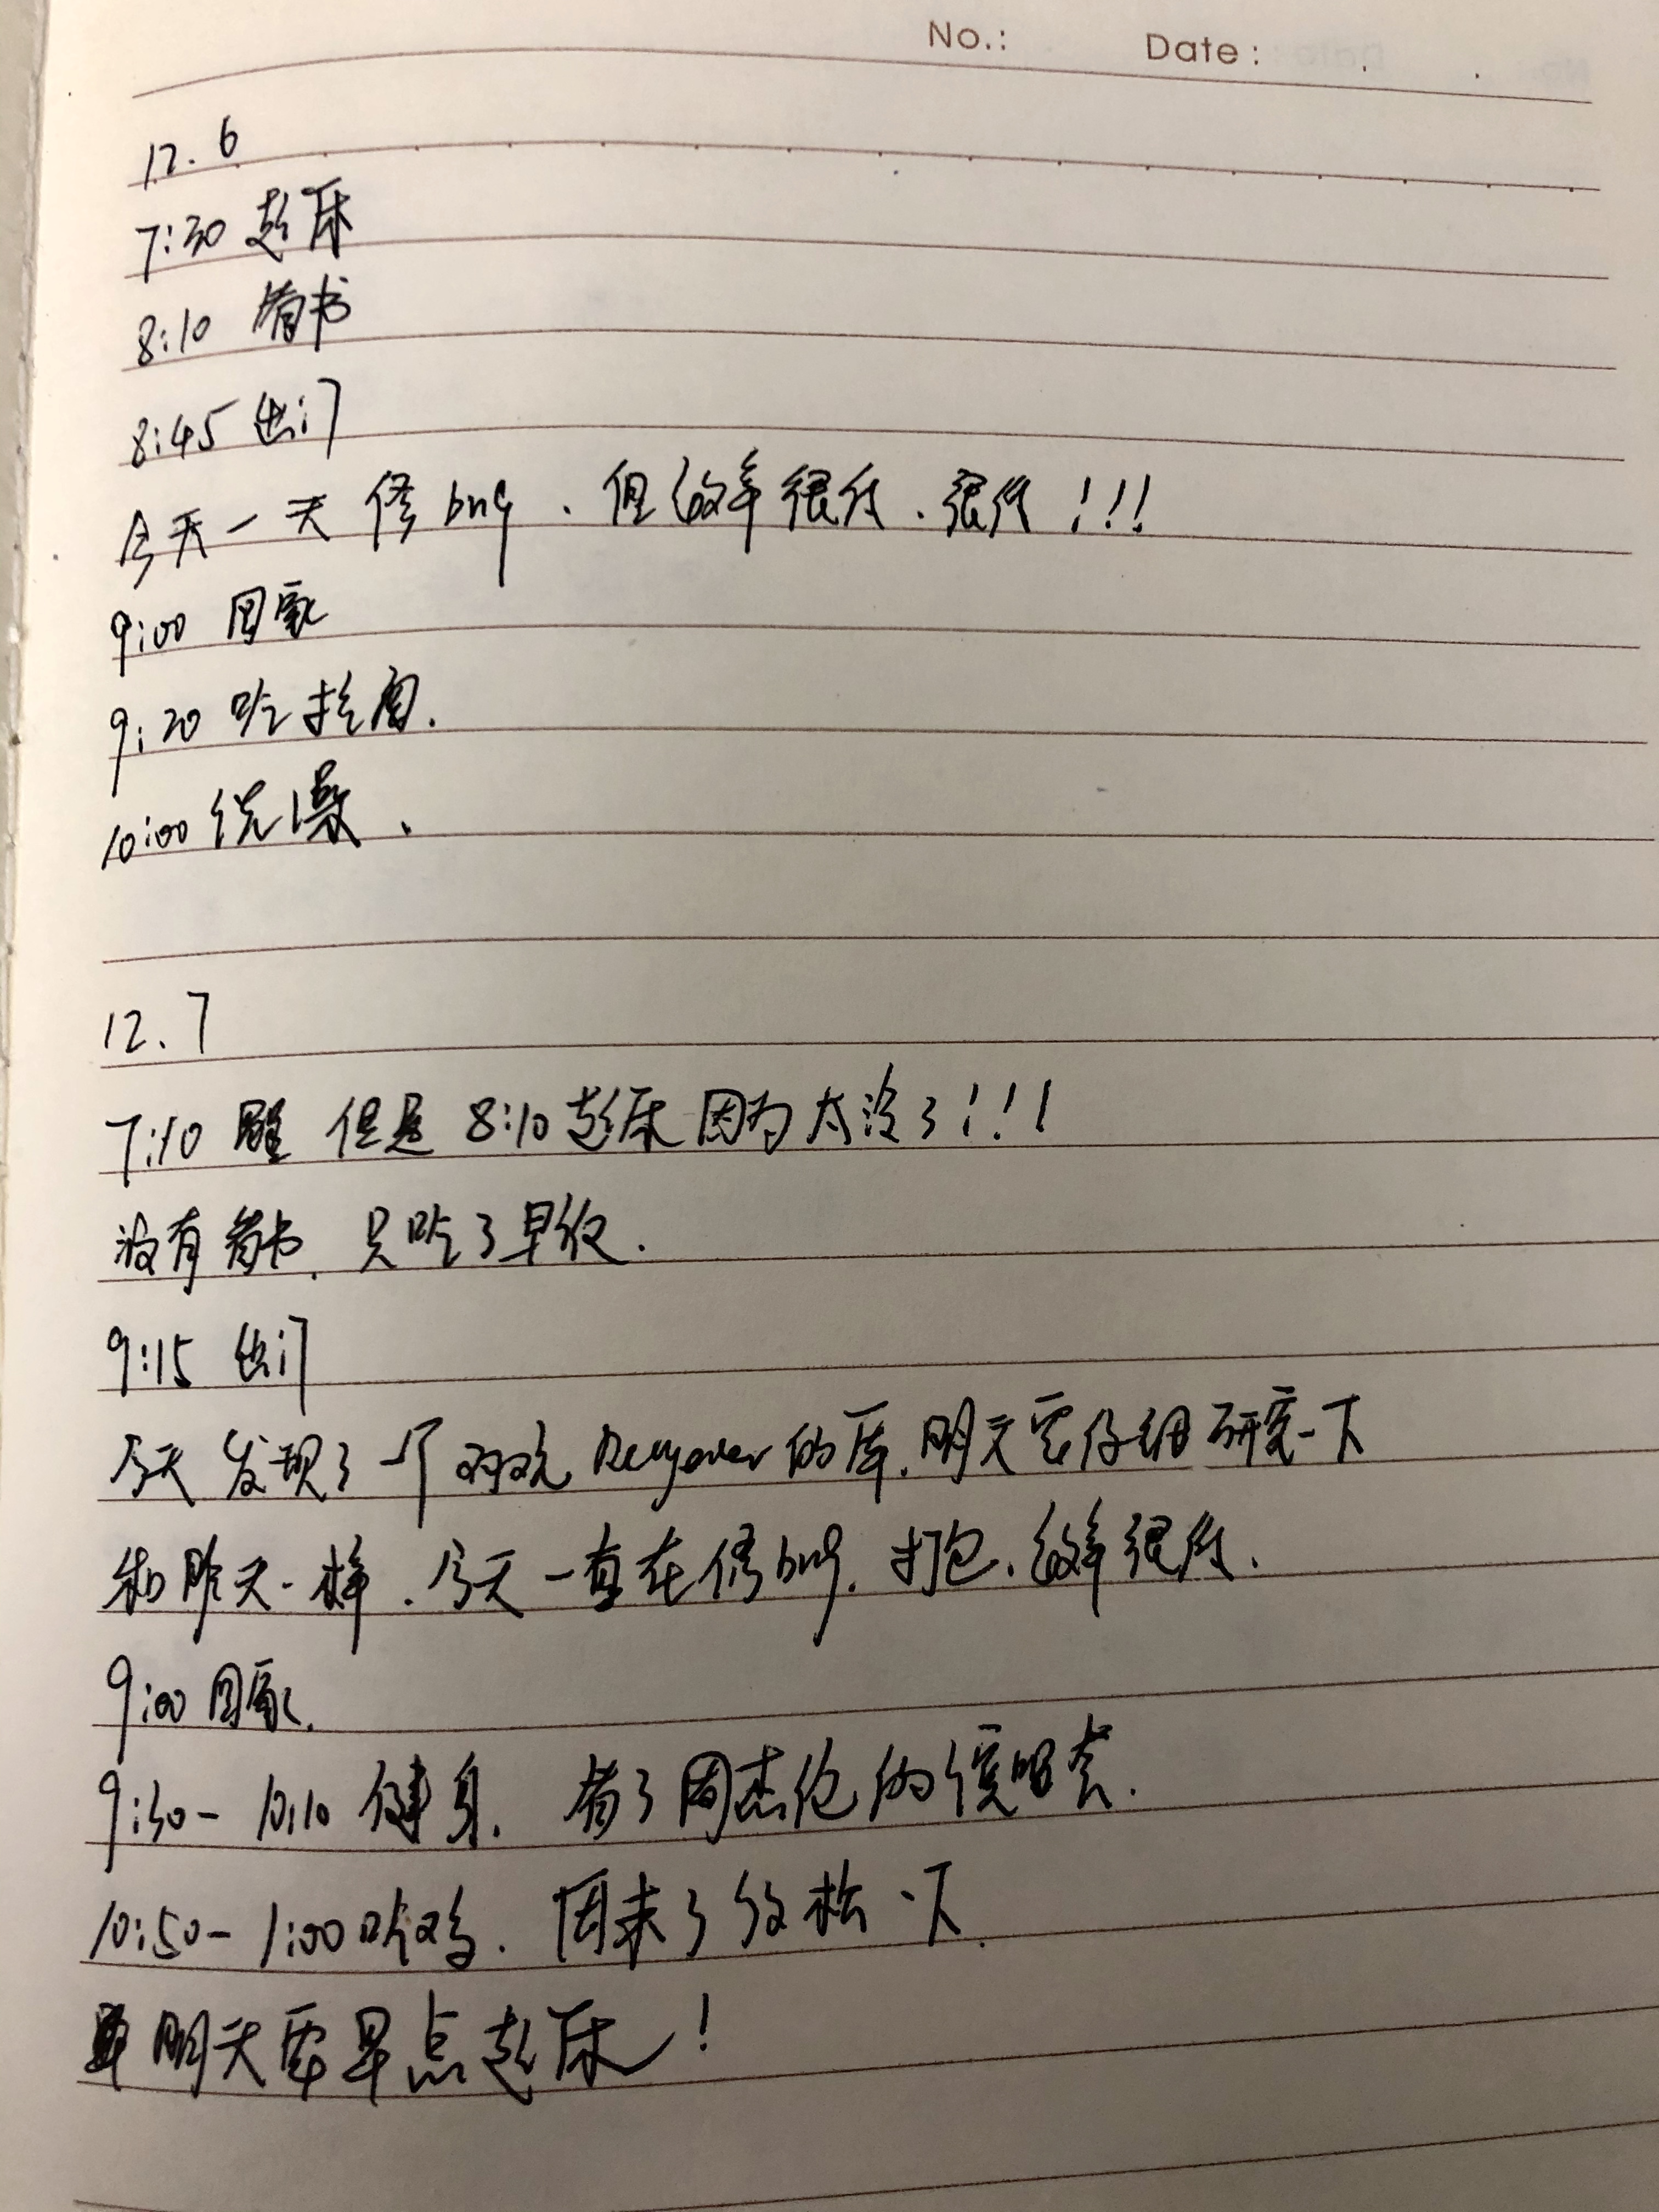 No.: Date:
12.6
7:30 起床
8:10 看书
8:45 出门
今天一天修bug、但效率很低、很低!!!
9:00 回家
9:20 吃抢面.
10:00 洗澡、
12.7
7:10 醒 但是 8:10 起床 因为太冷了!!!
没有看书, 只吃了早饭.
9:15 出门
今天发现了一个 的库, 明天要仔细研究一下
和昨天一样、今天一直在修bug, 打包, 效率很低.
9:00 回家.
9:30-10:10 健身, 看了周杰伦的演唱会.
10:50-1:00 吃鸡, 周末了放松一下.
明天要早点起床!